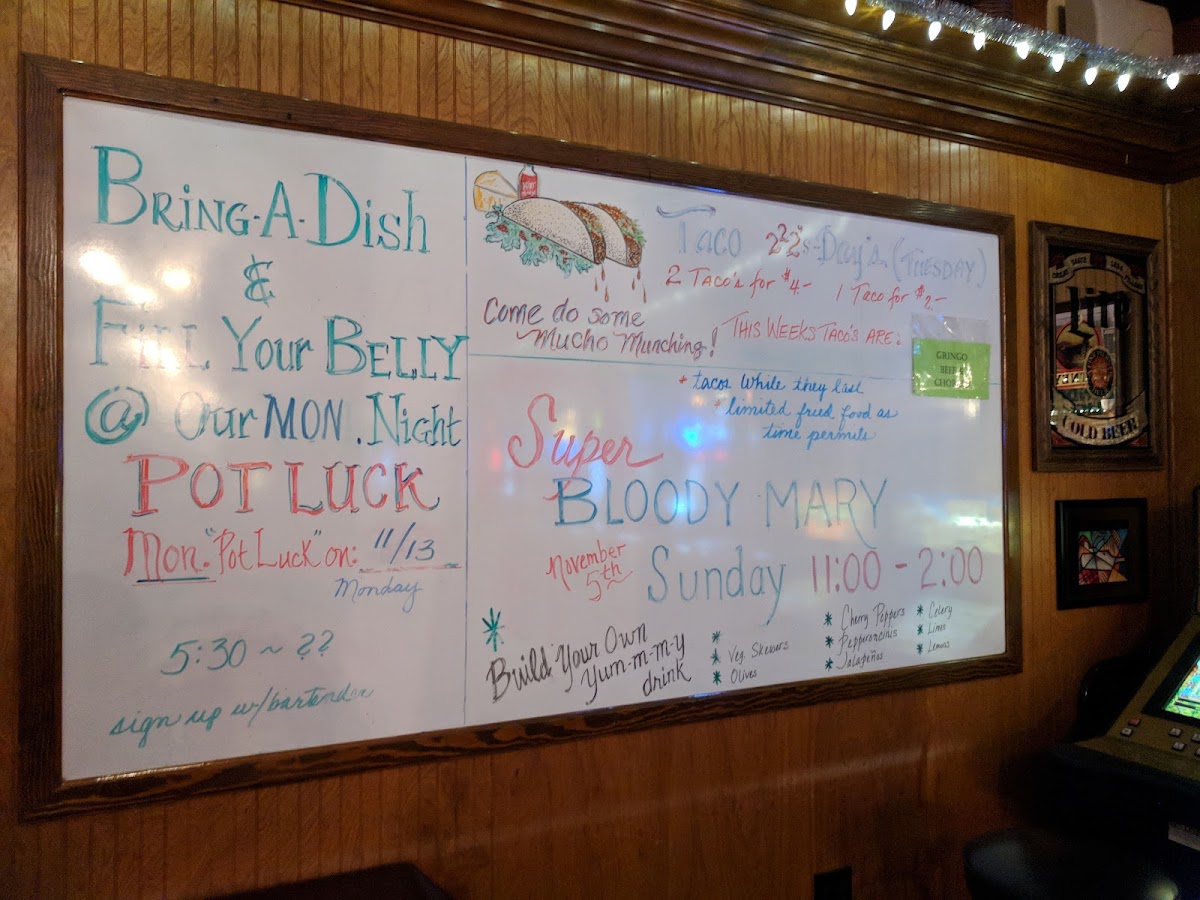 Bring-A-Dish
&
Fill Your Belly
@ Our MON. Night
POT LUCK
Mon. "Pot Luck" on: 11/13
Monday
5:30 ~ ??
sign up w/bartender
Taco 2$2's-Day's. (Tuesday)
2 Taco's for $4.-
1 Taco for $2.-
Come do some
Mucho Munching!
This Weeks Taco's Are:
GRINGO
BEEF &
* tacos while they last
* limited fried food as
time permits
Super
BLOODY MARY
November
5th
Sunday 11:00 - 2:00
* Build Your Own
Yum-m-m-y
drink
*
* Veg. Skewers
* Olives
* Cherry Peppers
* Pepperoncinis
* Jalapeños
* Celery
* Limes
* Lemons
Lite
COLD BEER